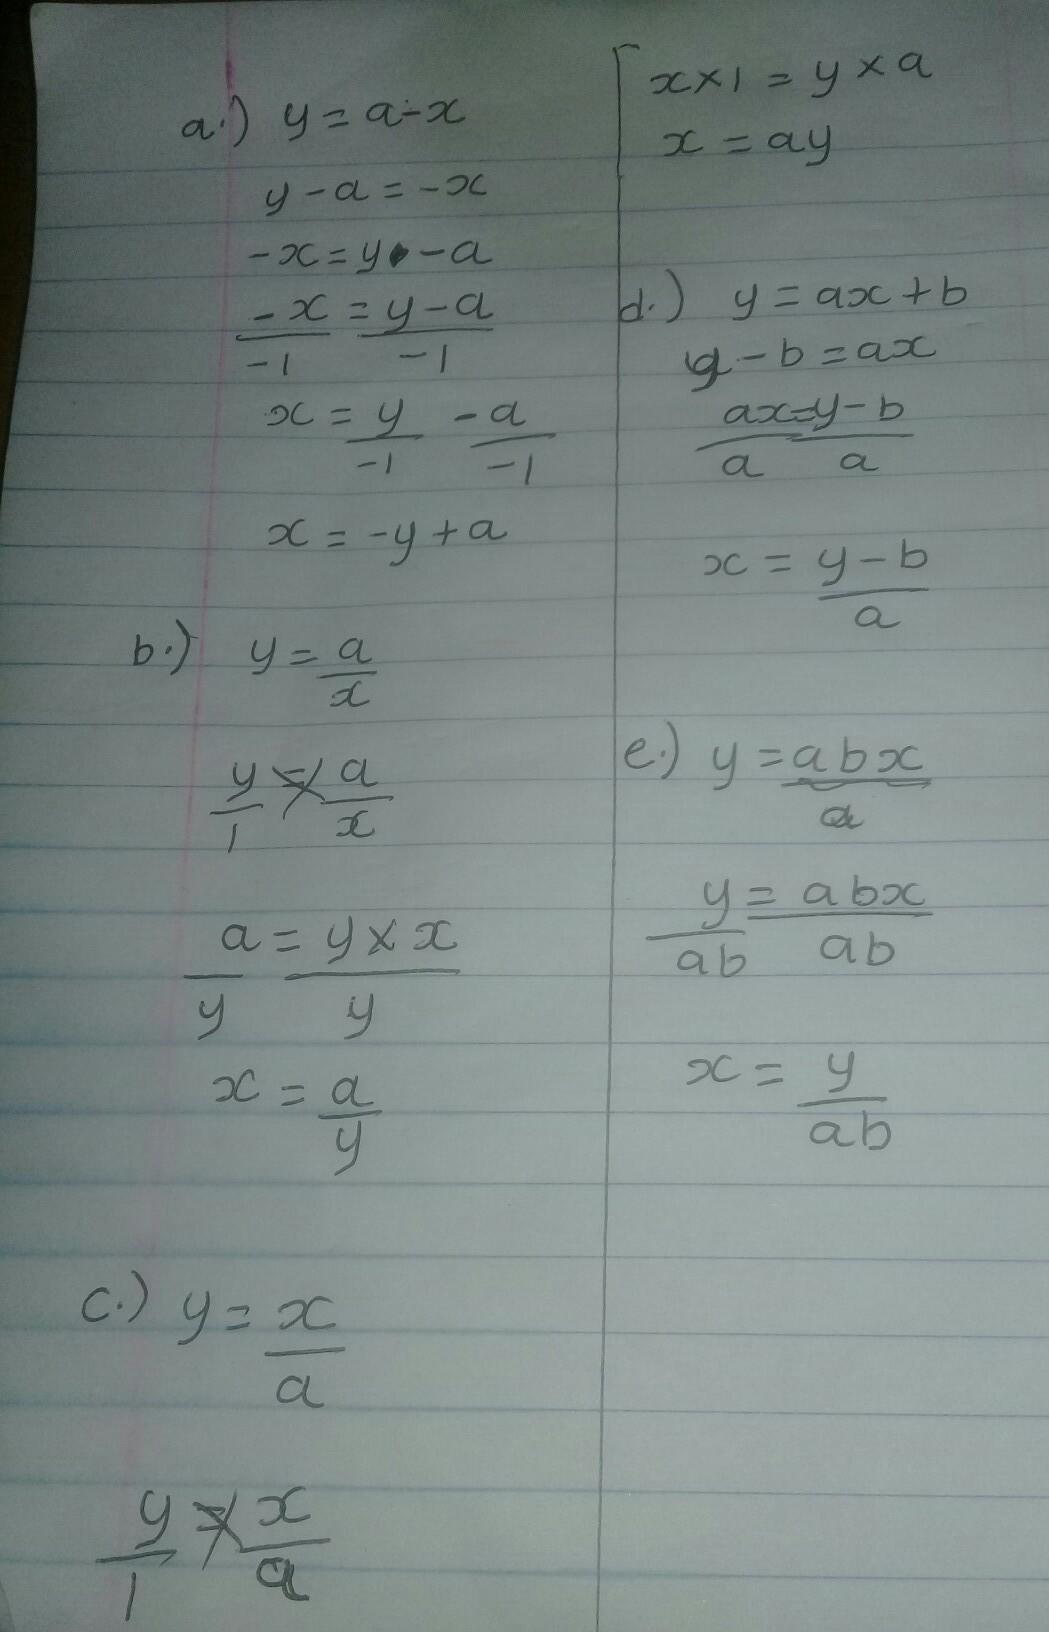 a.) y = a - x
y - a = -x
-x = y - a
-x/-1 = y - a/-1
x = y/-1 - a/-1
x = -y + a
b.) y = a/x
y/1 = a/x
a/y = y × x/y
x = a/y
c.) y = x/a
y/1 = x/a
x × 1 = y × a
x = ay
d.) y = ax + b
y - b = ax
ax/a = y - b/a
x = y - b/a
e.) y = abx/a
y/ab = abx/ab
x = y/ab